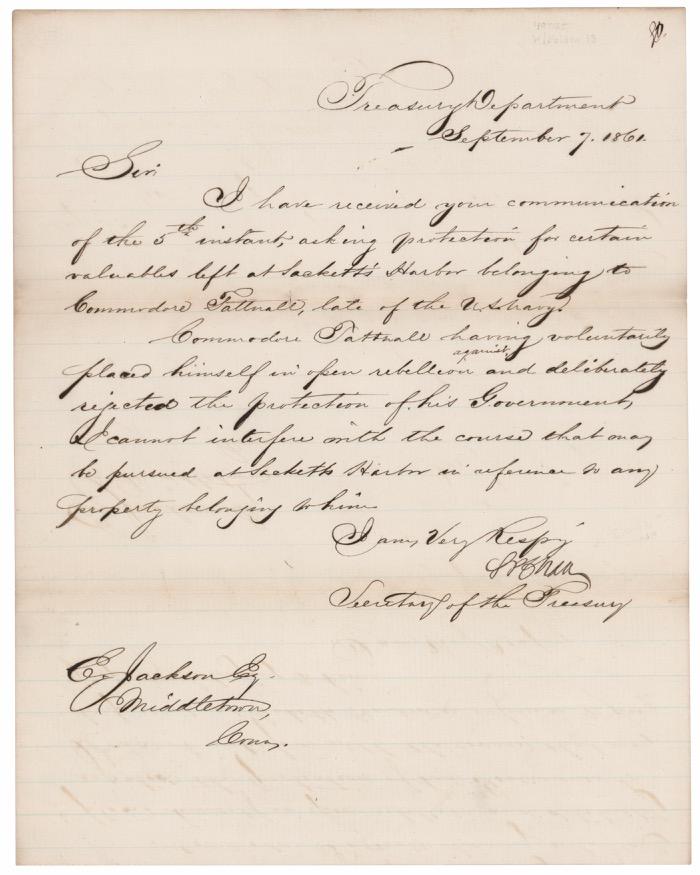 Treasury Department
September 7. 1861.
Sir:
I have received your communication
of the 5th instant, asking protection for certain
valuables left at Sacketts Harbor belonging to
Commodore Tattnall, late of the U.S. Navy.
Commodore Tattnall having voluntarily
against
placed himself in open rebellion and deliberately
rejected the protection of his Government,
I cannot interfere with the course that may
be pursued at Sacketts Harbor in reference to any
property belonging to him
I am, Very Respy
SPChase
Secretary of the Treasury
E. Jackson Esq.
Middletown,
Conn.